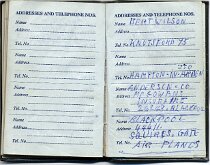 ADDRESSES AND TELEPHONE NOS.
Name
Address
Tel. No.
Name
Address
Tel. No.
Name
Address
Tel. No.
Name
Address
Tel. No.
ADDRESSES AND TELEPHONE NOS.
Name BERT WILSON
Address
Tel. No. KNUTSFORD 95
Name
Address
250
Tel. No. HAMPTON-IN-ARDEN
Name ANDERSON & CO
Address
Tel. No.
Name BLACKPOOL
Address 4441
SQUIRES GATE
Tel. No. AIR PLANES